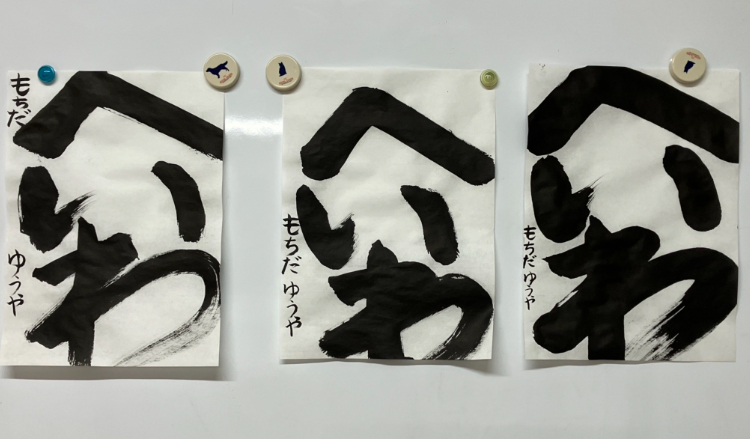 へいわ
もちだ ゆうや
へいわ
もちだ ゆうや
へいわ
もちだ ゆうや